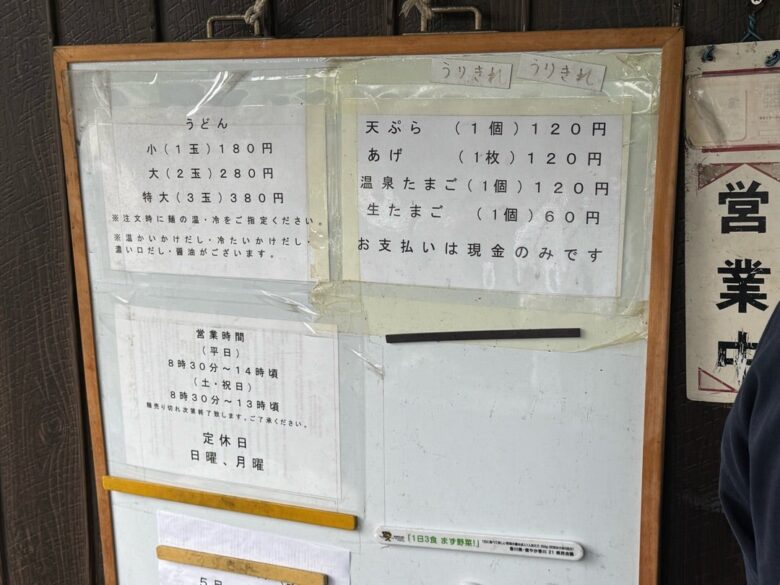 うりきれ
うりきれ
うどん
小(1玉)180円
大(2玉)280円
特大(3玉)380円
※注文時に麺の温・冷をご指定ください。
※温かいかけだし・冷たいかけだし・
濃い口だし・醤油がございます。
天ぷら (1個)120円
あげ (1枚)120円
温泉たまご(1個)120円
生たまご (1個)60円
お支払いは現金のみです
営業時間
(平日)
8時30分~14時頃
(土・祝日)
8時30分~13時頃
麺売り切れ次第終了致します。ご了承ください。
定休日
日曜、月曜
「1日3食 まず野菜!」
5日
営業中